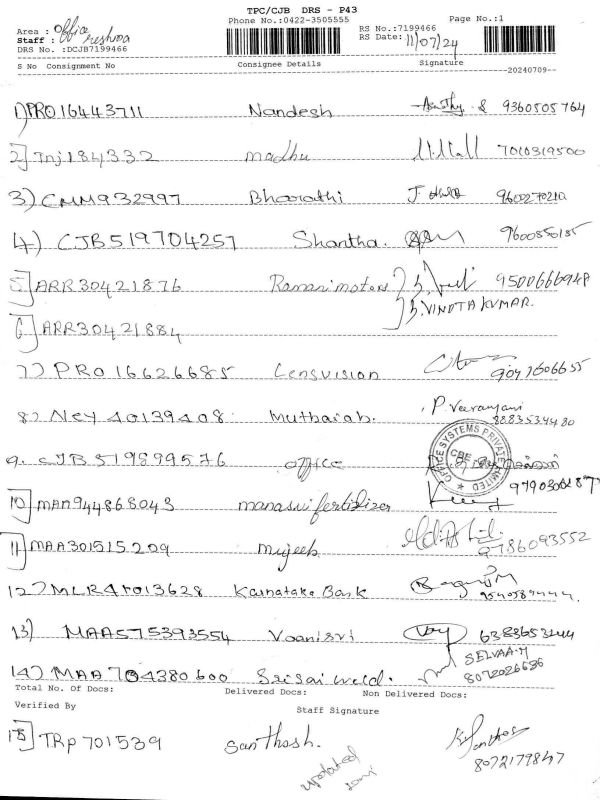 TPC/CJB DRS - P43
Phone No.:0422-3505555
Page No.:1
Area : Office
Staff : reshma
DRS No. :DCJB7199466
RS No.:7199466
RS Date: 11/07/24
S No Consignment No Consignee Details Signature
20240709--
1) PRO16443711 Nandesh 9360505764
2] Tnj184332 madhu 7010319500
3) CMM932997 Bharathi J.
4) CJB519704257 Shantha.
5] ARR30421876 Ramani motors 9500666948
S.VINOTH KUMAR.
6] ARR30421884
7) PRO16626685 Lensvision 9047606655
8) Ney 40139408 Muthaiah. P.Veeramani
8883534480
9. CJB519899576 office
OFFICE SYSTEMS PRIVATE LIMITED
CBE
10] MAM944868043 manasvi fertilizer
11] MAA301515209 mujeeb 9786093552
12) MLR Karnataka Bank
13) MAA575393554 Vaanisri 6383653444
14) MAA704380600 Srisai weld. SELVAA.M
8072026636
Total No. Of Docs: Delivered Docs: Non Delivered Docs:
Verified By Staff Signature
15] TRP701539 Santhosh. K.Santhos
8072179847
updated